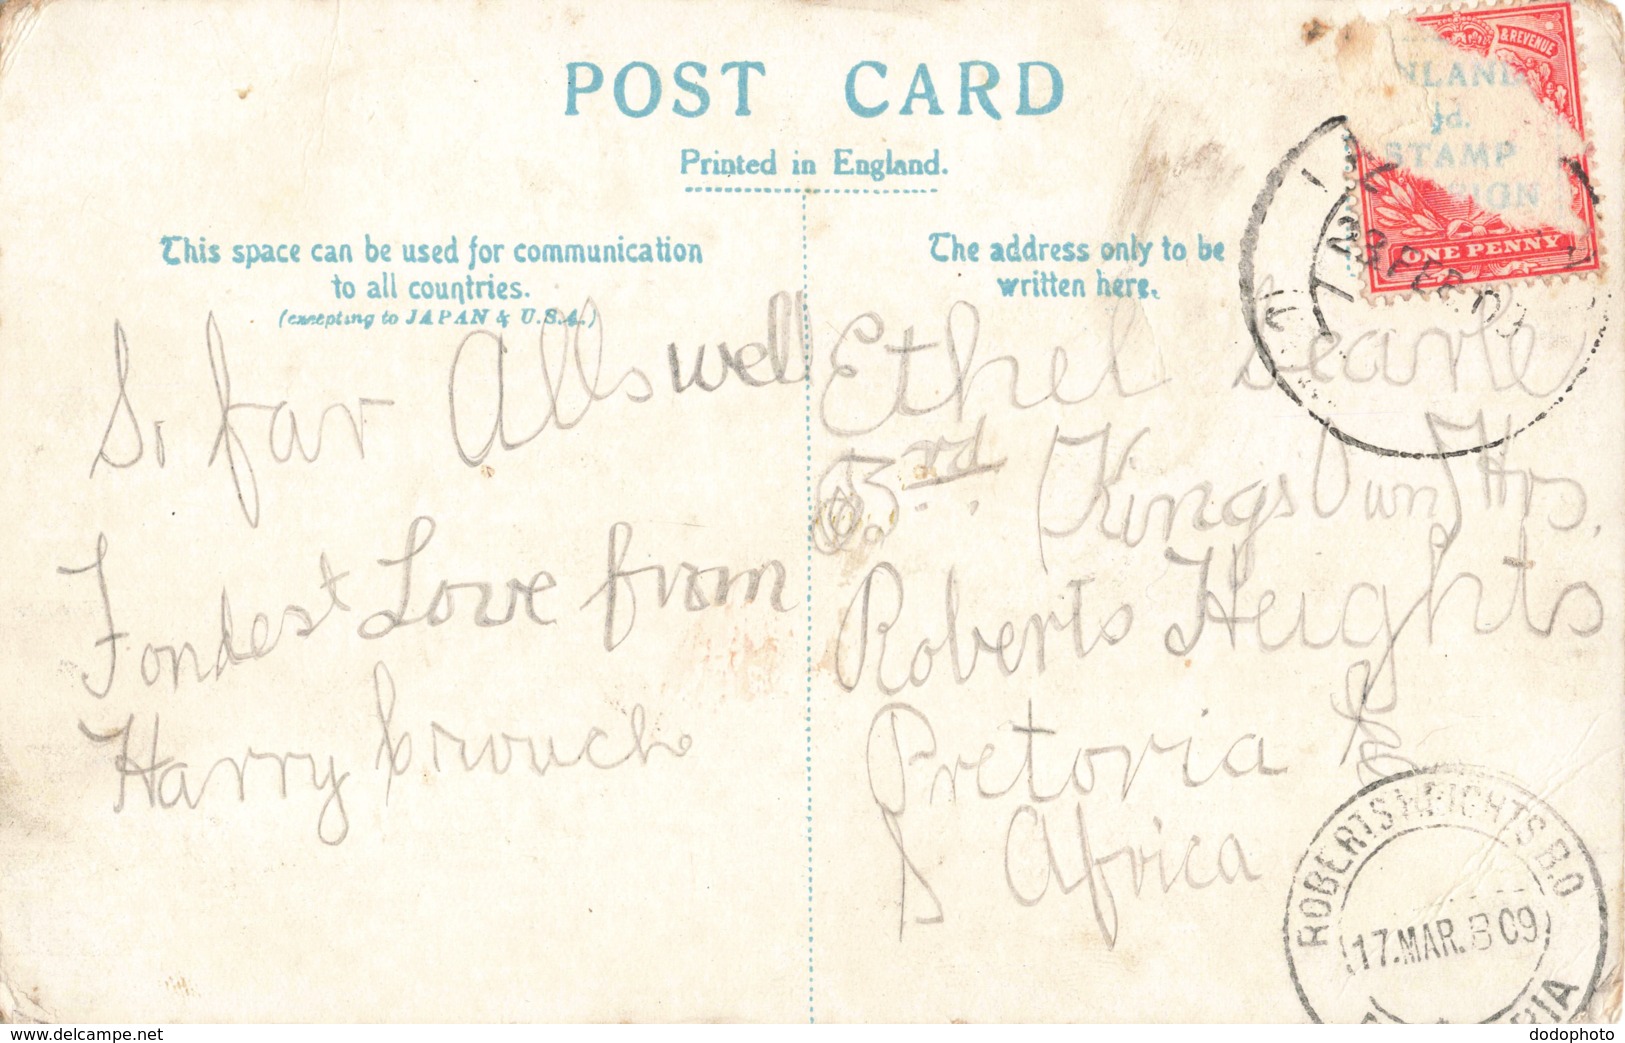 POST CARD
Printed in England.
This space can be used for communication
to all countries.
(excepting to JAPAN & U.S.A.)
The address only to be
written here.
& REVENUE
INLAND
½d.
STAMP
ONE PENNY
23 FEB 09
So far Alls well
Fondest Love from
Harry Crouch
Ethel Searle
3rd Kings Own Hrs.
Roberts Heights
Pretoria
S Africa
ROBERTS HEIGHTS B.O
17.MAR.B 09
RIA
dodophoto